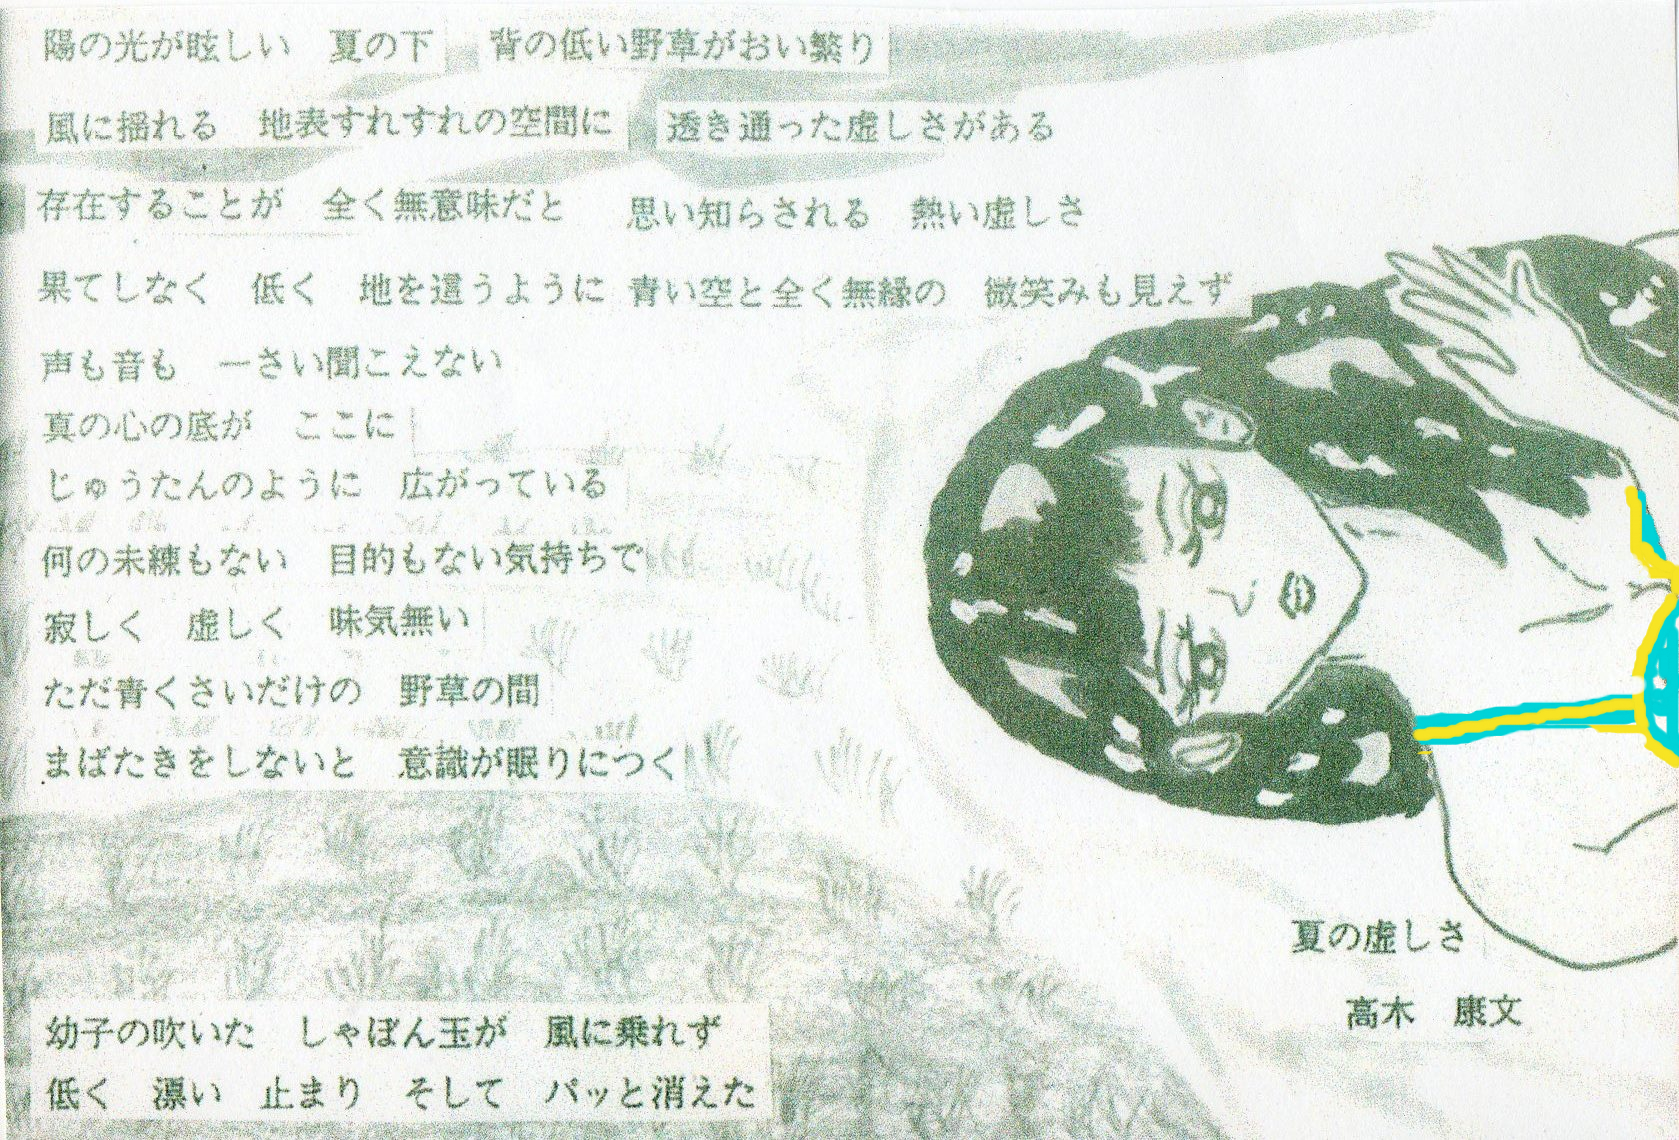 陽の光が眩しい　夏の下　背の低い野草がおい繁り
風に揺れる　地表すれすれの空間に　透き通った虚しさがある
存在することが　全く無意味だと　思い知らされる　熱い虚しさ
果てしなく　低く　地を這うように　青い空と全く無縁の　微笑みも見えず
声も音も　一さい聞こえない
真の心の底が　ここに
じゅうたんのように　広がっている
何の未練もない　目的もない気持ちで
寂しく　虚しく　味気無い
ただ青くさいだけの　野草の間
まばたきをしないと　意識が眠りにつく
幼子の吹いた　しゃぼん玉が　風に乗れず
低く　漂い　止まり　そして　パッと消えた
夏の虚しさ
高木　康文